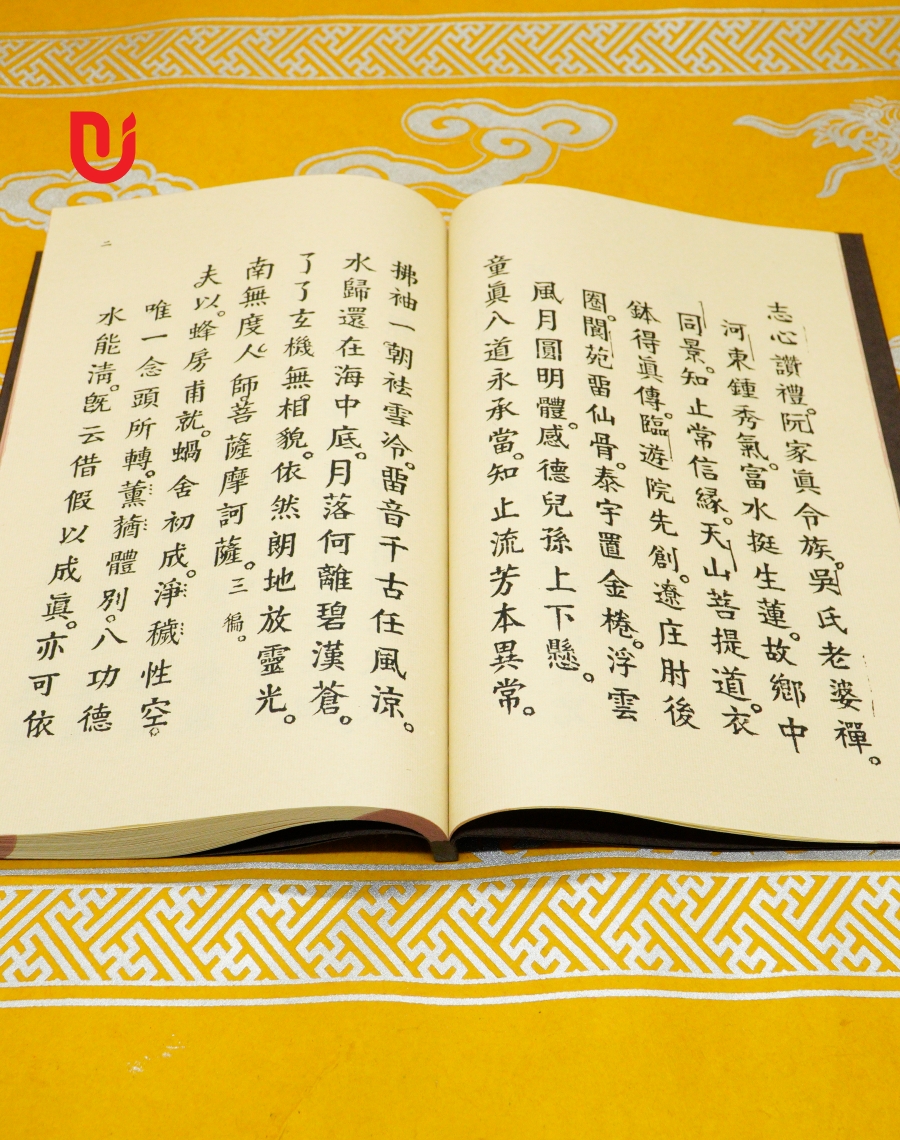 志心讚禮。阮家眞令族。吳氏老婆禪。
河東鍾秀氣。富水挺生蓮。故鄉中
同景。知止常信緣。天山菩提道。衣
鉢得眞傳。臨遊院先創。遼庄肘後
圈。閬苑畱仙骨。泰宇置金棬。浮雲
風月圓明體。感德兒孫上下懸。
童眞八道永承當。知止流芳本異常。
拂袖一朝袪雪冷。畱音千古任風涼。
水歸還在海中底。月落何離碧漢蒼。
了了玄機無相貌。依然朗地放靈光。
南無度人師。菩薩摩訶薩。三徧。
夫以。蜂房甫就。蝸舍初成。淨穢性空。
唯一念頭所轉。薰蕕體別。八功德
水能淸。旣云借假以成眞。亦可依
二